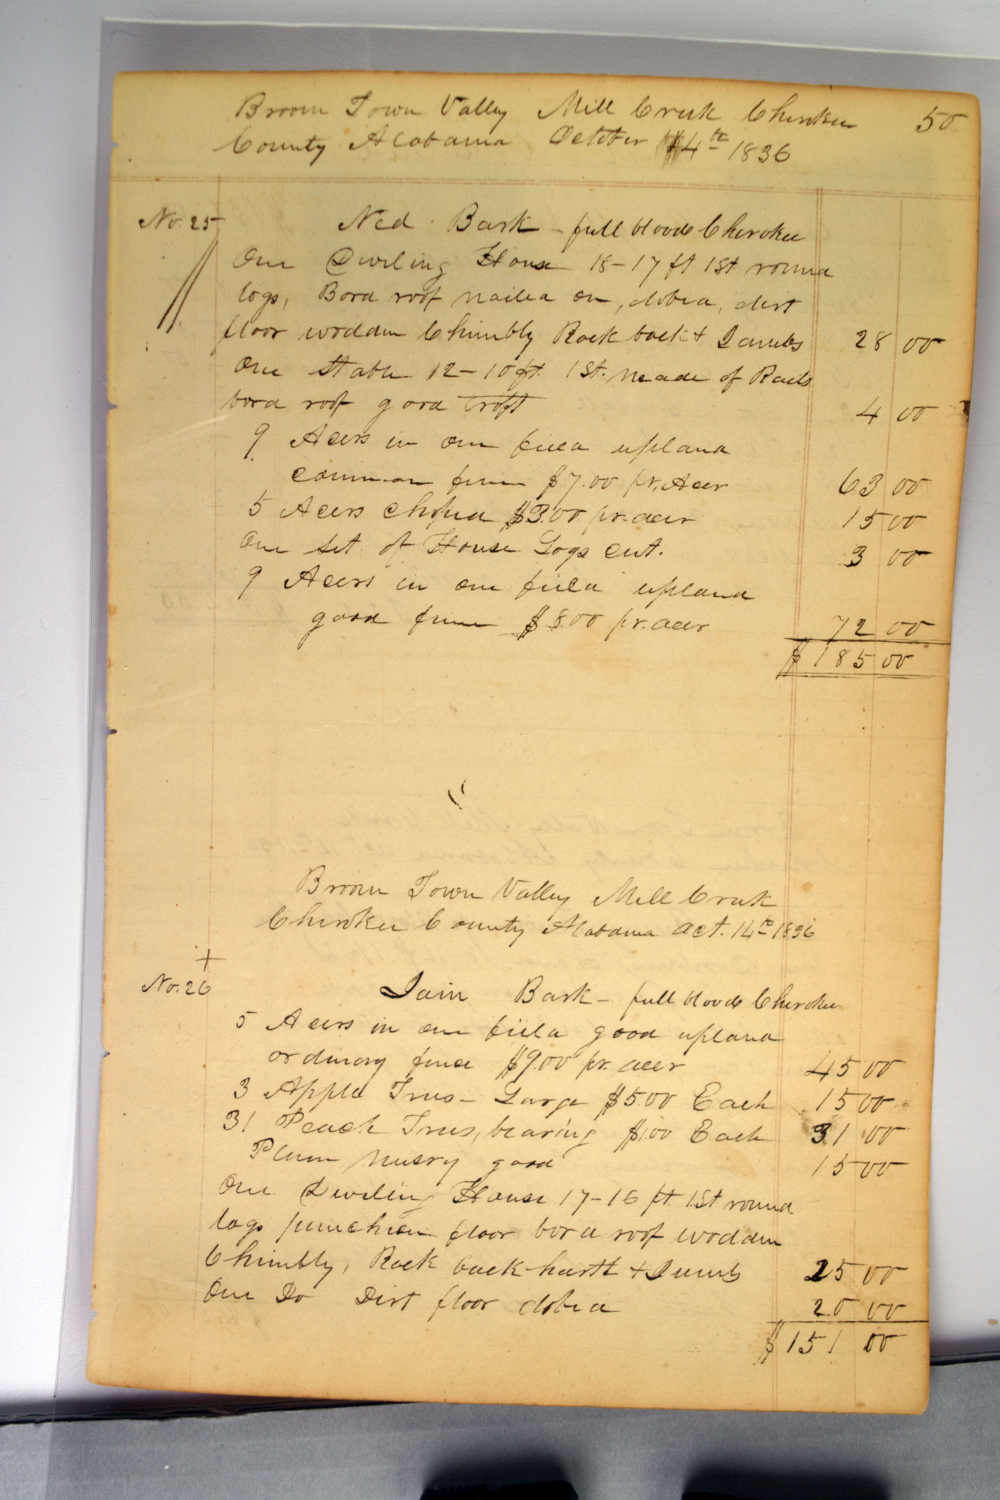 Broom Town Valley Mill Creek Cherokee 50
County Alabama October 14th 1836
No. 25 Ned Bark - full blood Cherokee
One Dweling House 18-17 ft 1st round
logs, Bord roof nailed on, dobed, dirt
floor wooddn Chimbly Rock back & Jambs 28 00
One Stable 12-10 ft. 1st. made of Rails
bord roof good troft 4 00
9 Acers in one field upland
common fence $7.00 pr. Acer 63 00
5 Acers choped $3.00 pr. acer 15 00
One Set of House Logs cut. 3 00
9 Acers in one field upland
good fence $8.00 pr. acer 72 00
$ 185 00
Broom Town Valley Mill Creek
Cherokee County Alabama Oct. 14th 1836
+
No. 26 Bark - full blood Cherokee
5 Acers in one field good upland
ordinary fence $9.00 pr. acer 45 00
3 Apple Trees - Large $5 00 Each 15 00
31 Peach Trees, bearing $1.00 Each 31 00
Plum nusry good 15 00
One Dweling House 17-16 ft 1st round
logs puncheon floor bord roof wooddn
Chimbly, Rock back harth & Jambs 25 00
One Do Dirt floor dobed 20 00
$ 151 00